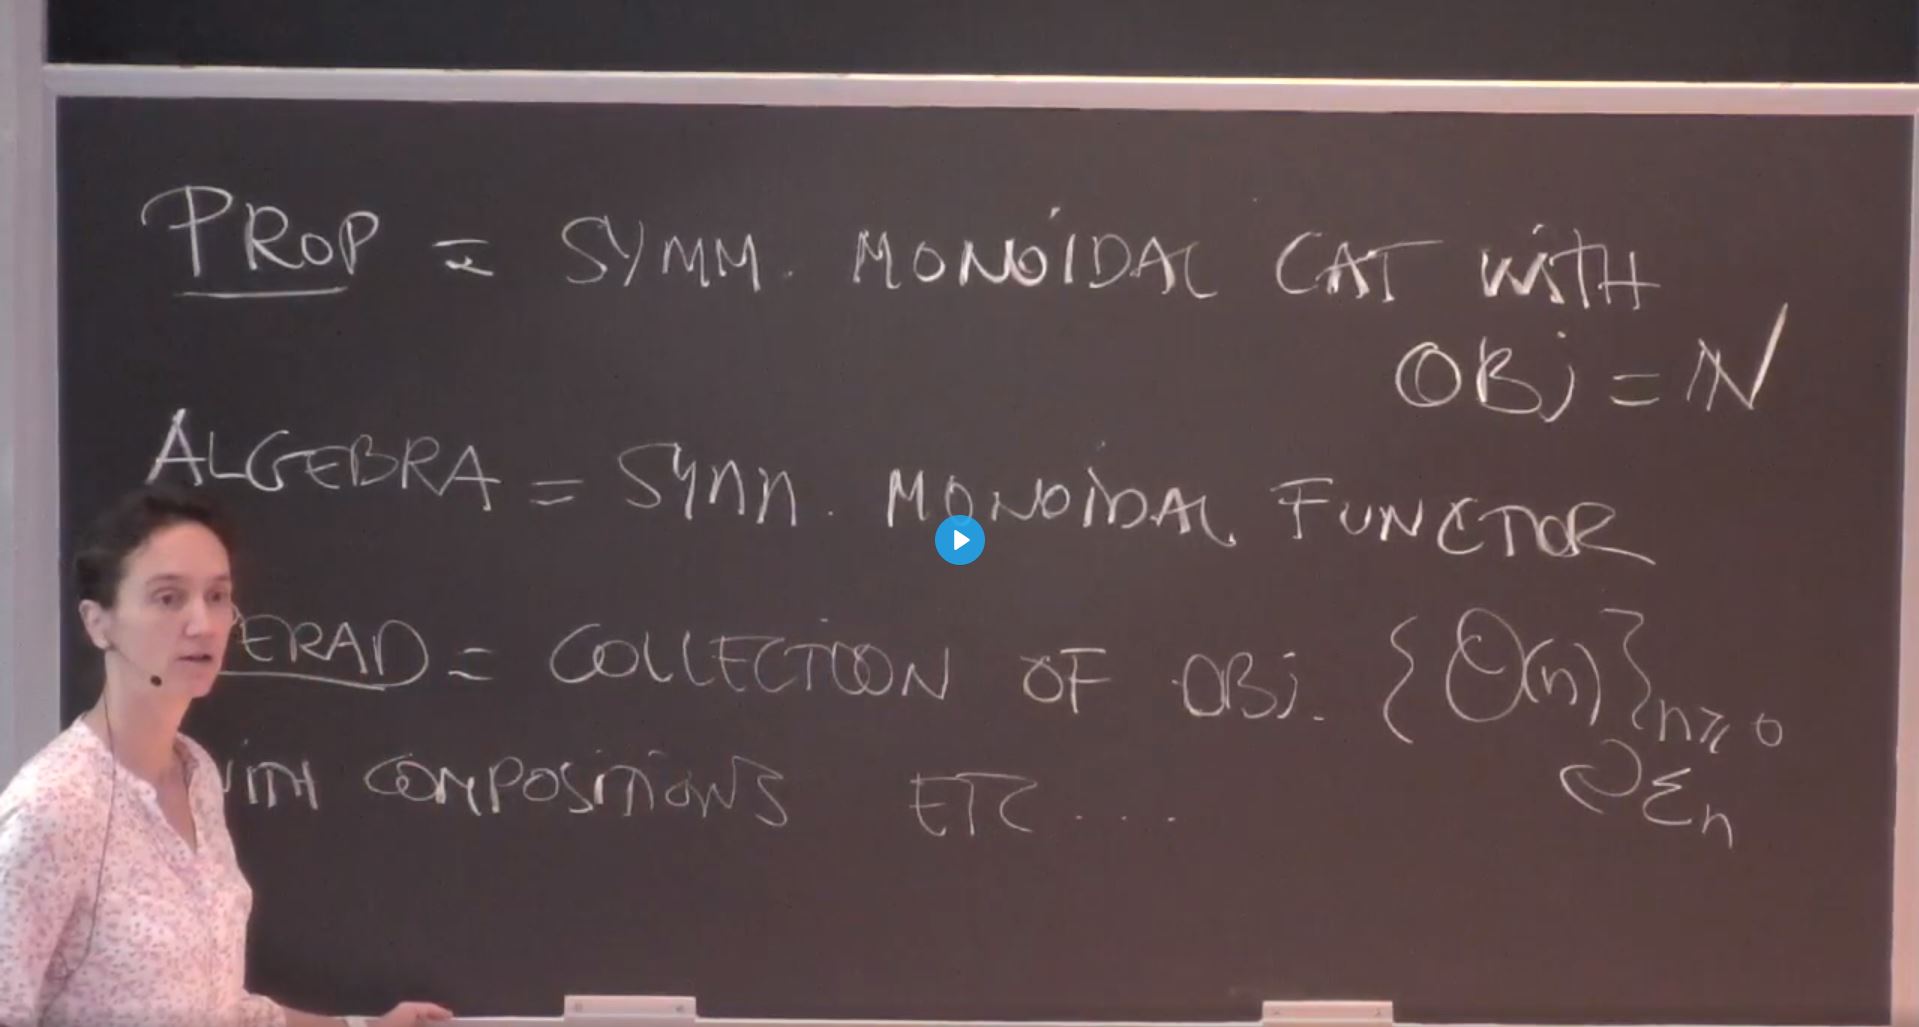 PROP = SYMM. MONOIDAL CAT WITH
OBJ = ℕ
ALGEBRA = SYMM. MONOIDAL FUNCTOR
ERAD = COLLECTION OF OBJ. {O(n)}n≥0
↻Σn
WITH COMPOSITIONS ETC....